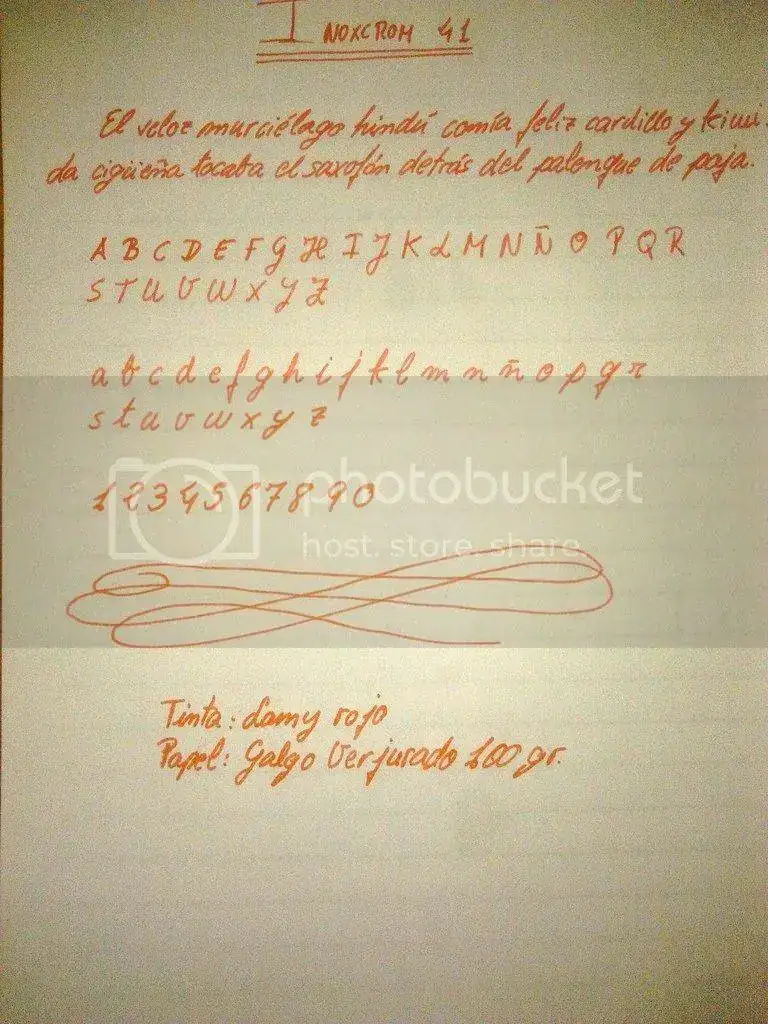 INOXCROM 41
El veloz murciélago hindú comía feliz cardillo y kiwi.
La cigüeña tocaba el saxofón detrás del palenque de paja.
A B C D E F G H I J K L M N Ñ O P Q R
S T U V W X Y Z
a b c d e f g h i j k l m n ñ o p q r
s t u v w x y z
1 2 3 4 5 6 7 8 9 0
photobucket
host. store. share.
Tinta: Lamy rojo
Papel: Galgo Verjurado 100 gr.